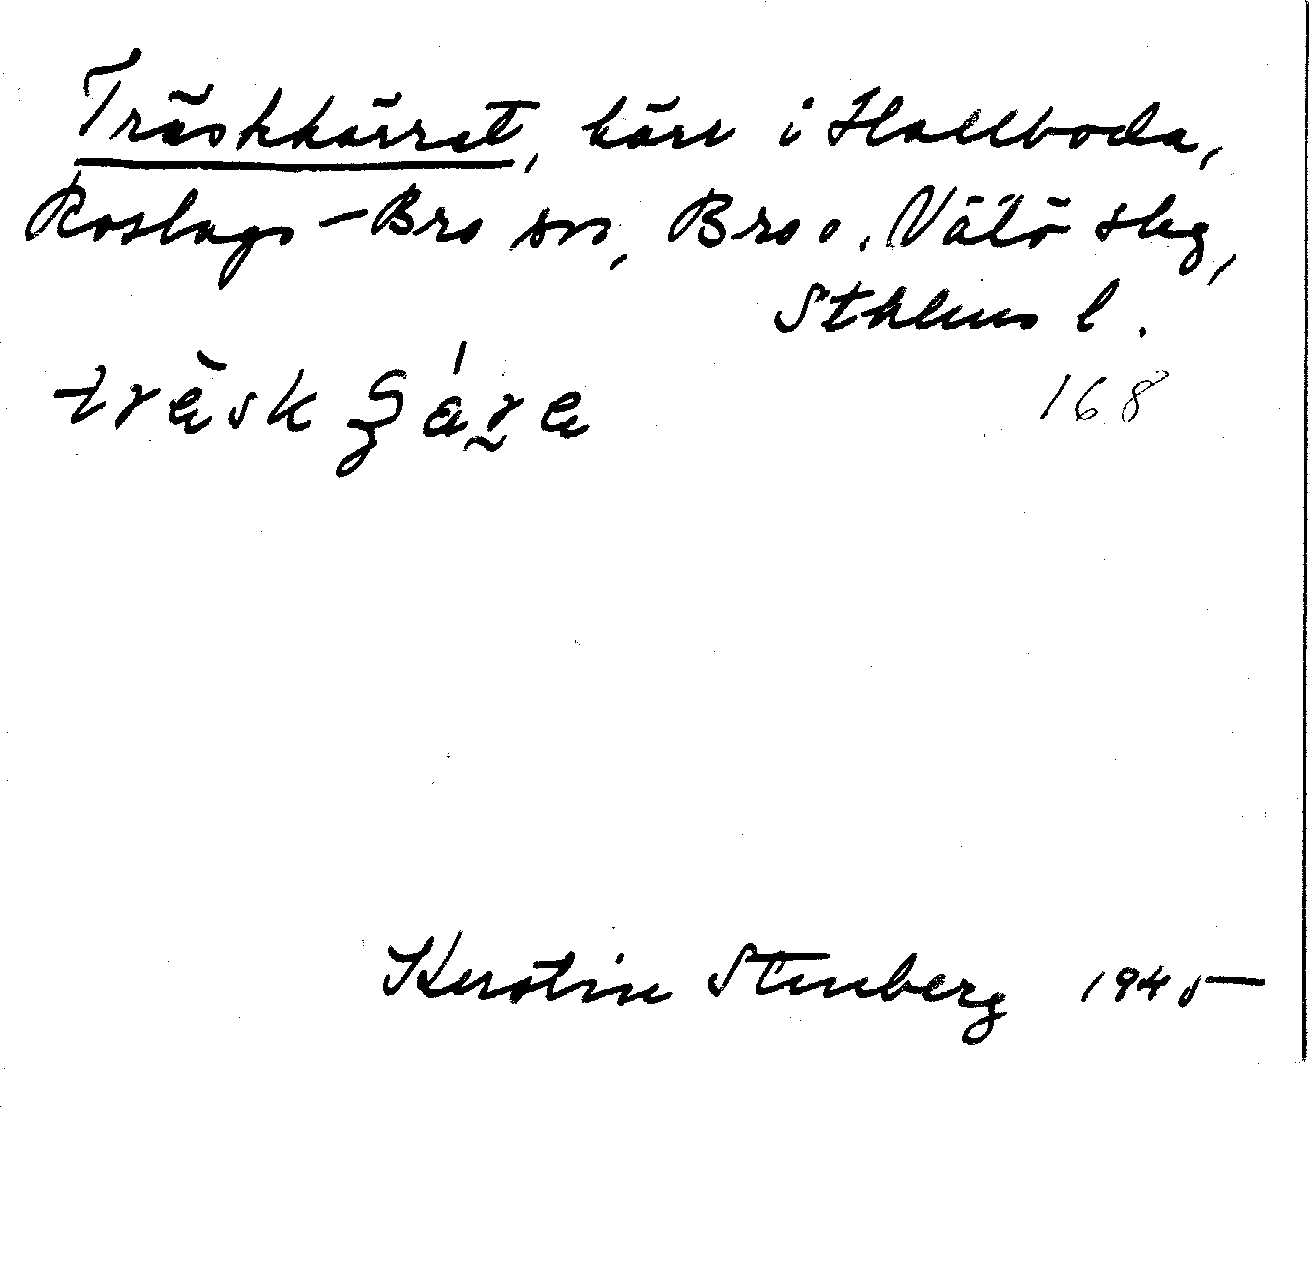 Träskkärret, kärr i Hallboda,
Roslags-Bro sn, Bro o. Välö skg,
Sthlms l.
168
Kerstin Stenberg 1945